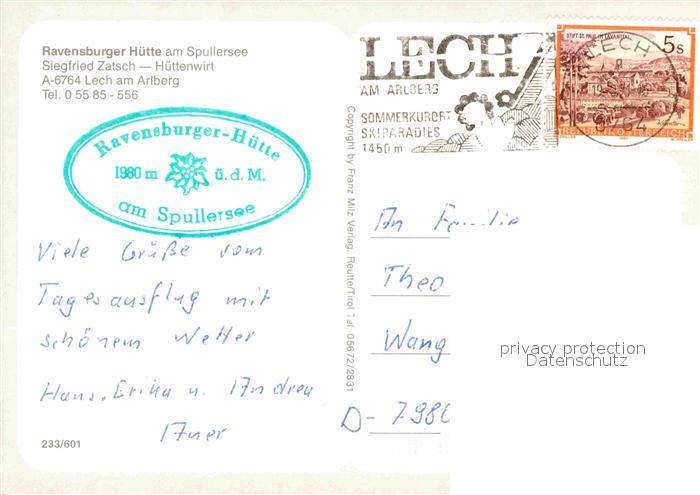 Ravensburger Hütte am Spullersee
Siegfried Zatsch — Hüttenwirt
A-6764 Lech am Arlberg
Tel. 0 55 85 - 556
Ravensburger-Hütte
1980 m ü.d.M.
am Spullersee
Viele Grüße vom
Tagesausflug mit
schönem Wetter
Hans, Erika u. Andrea
233/601
Copyright by Franz Milz Verlag, Reutte/Tirol Tel. 05672/2831
LECH
AM ARLBERG
SOMMERKURORT
SKIPARADIES
1450 m
STIFT ST. PAUL IM LAVANTTAL
5s
LECH
REPUBLIK ÖSTERREICH
An Familie
Theo
Wang
D- 7980
privacy protection
Datenschutz